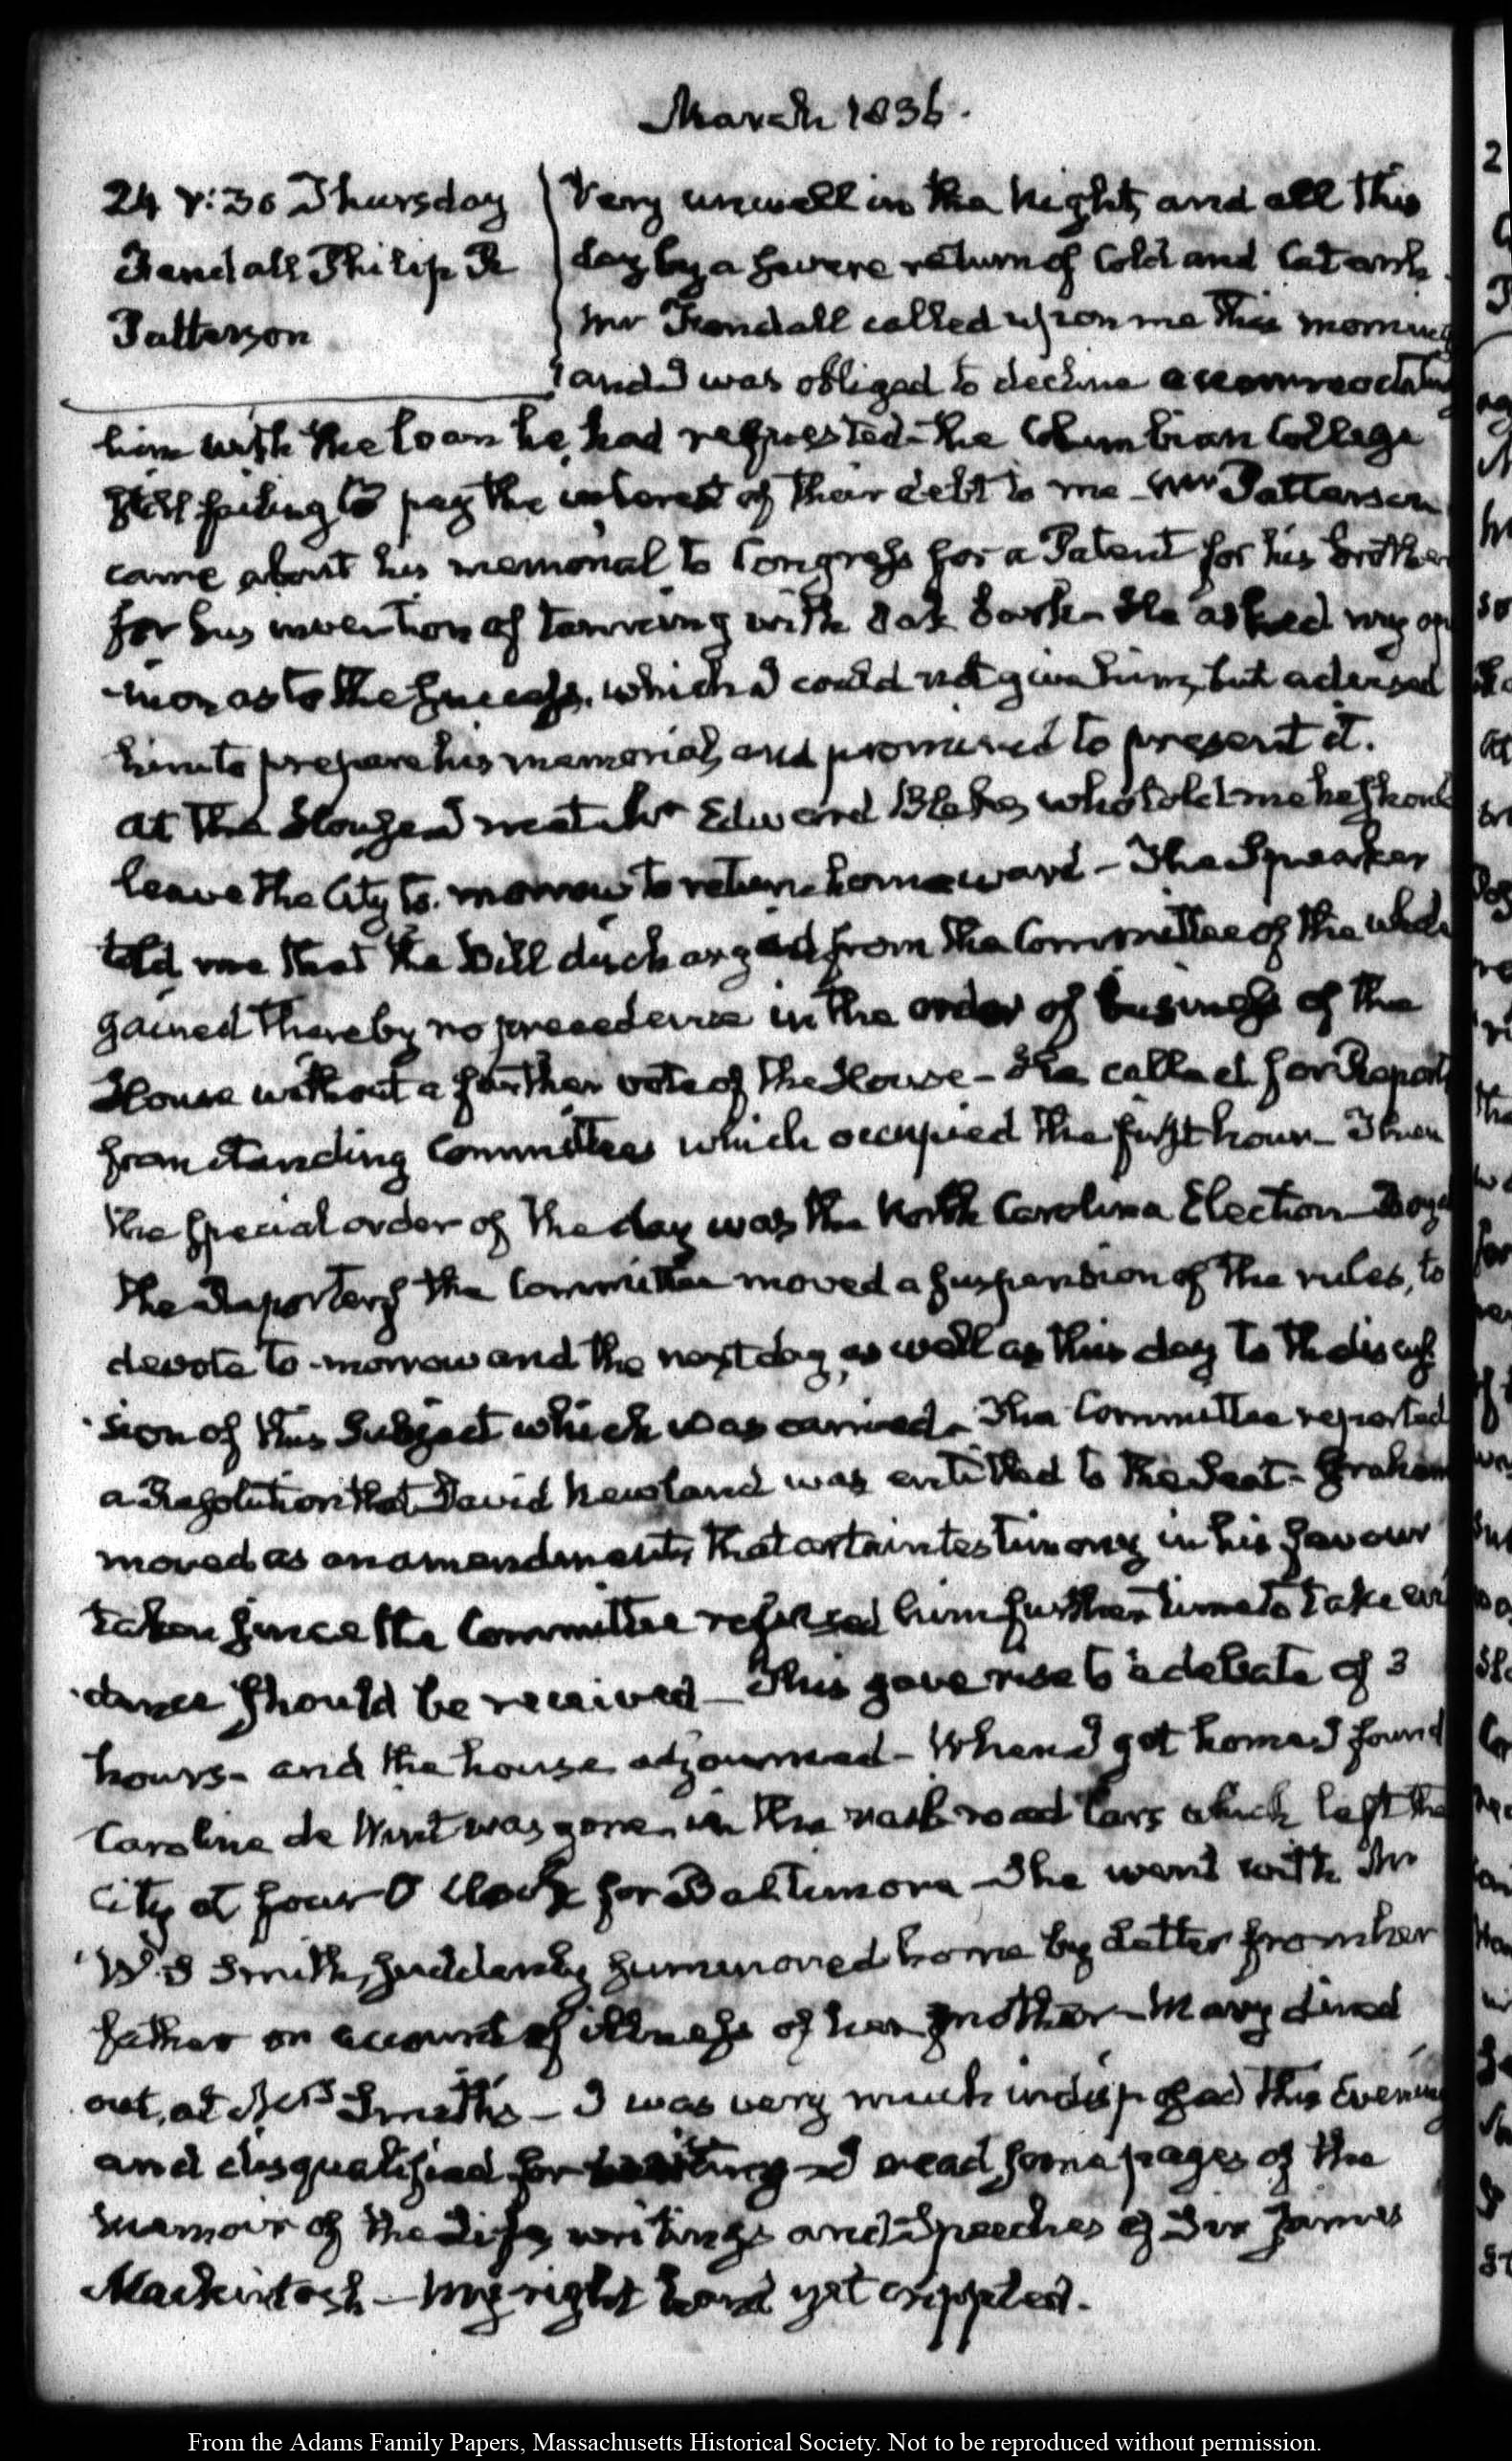 March 1836.
24 V:30 Thursday
Fendall Philip R
Patterson
Very unwell in the Night, and all this
day by a severe return of Cold and Catarrh.
Mr Fendall called upon me this morning
and I was obliged to decline accommodating
him with the loan he had requested—the Columbian College
still failing to pay the interest of their debt to me—Mr Patterson
came about his memorial to Congress for a Patent for his brother
for his invention of tanning with Oak bark—He asked my opi
nion as to the success, which I could not give him, but advised
him to prepare his memorial, and promised to present it.
at the House I met Mr Edward Blake, who told me he should
leave the City to-morrow to return homeward—The Speaker
told me that the Bill discharged from the Committee of the whole
gained thereby no precedence in the order of business of the
House without a further vote of the House—He called for Reports
from standing Committees which occupied the first hour—Then
the special order of the day was the North Carolina Election—Boyd
the Reporter of the Committee moved a suspension of the rules, to
devote to-morrow and the next day, as well as this day to the discus
sion of this Subject which was carried—The Committee reported
a Resolution that David Newland was entitled to the Seat—Graham
moved as an amendment, that certain testimony in his favour
taken since the Committee refused him further time to take evi
dence should be received—This gave rise to a debate of 3
hours—and the house adjourned—When I got home I found
Caroline de Wint was gone, in the rail-road Cars which left the
City at four O'Clock for Baltimore—She went with Mr
W. S Smith, suddenly summoned home by Letter from her
father on account of illness of her mother—Mary dined
out, at Mrs Smith's—I was very much indisposed this Evening
and disqualified for writing—I read some pages of the
memoir of the Life, writings and Speeches of Sir James
Mackintosh—My right hand yet crippled.
From the Adams Family Papers, Massachusetts Historical Society. Not to be reproduced without permission.